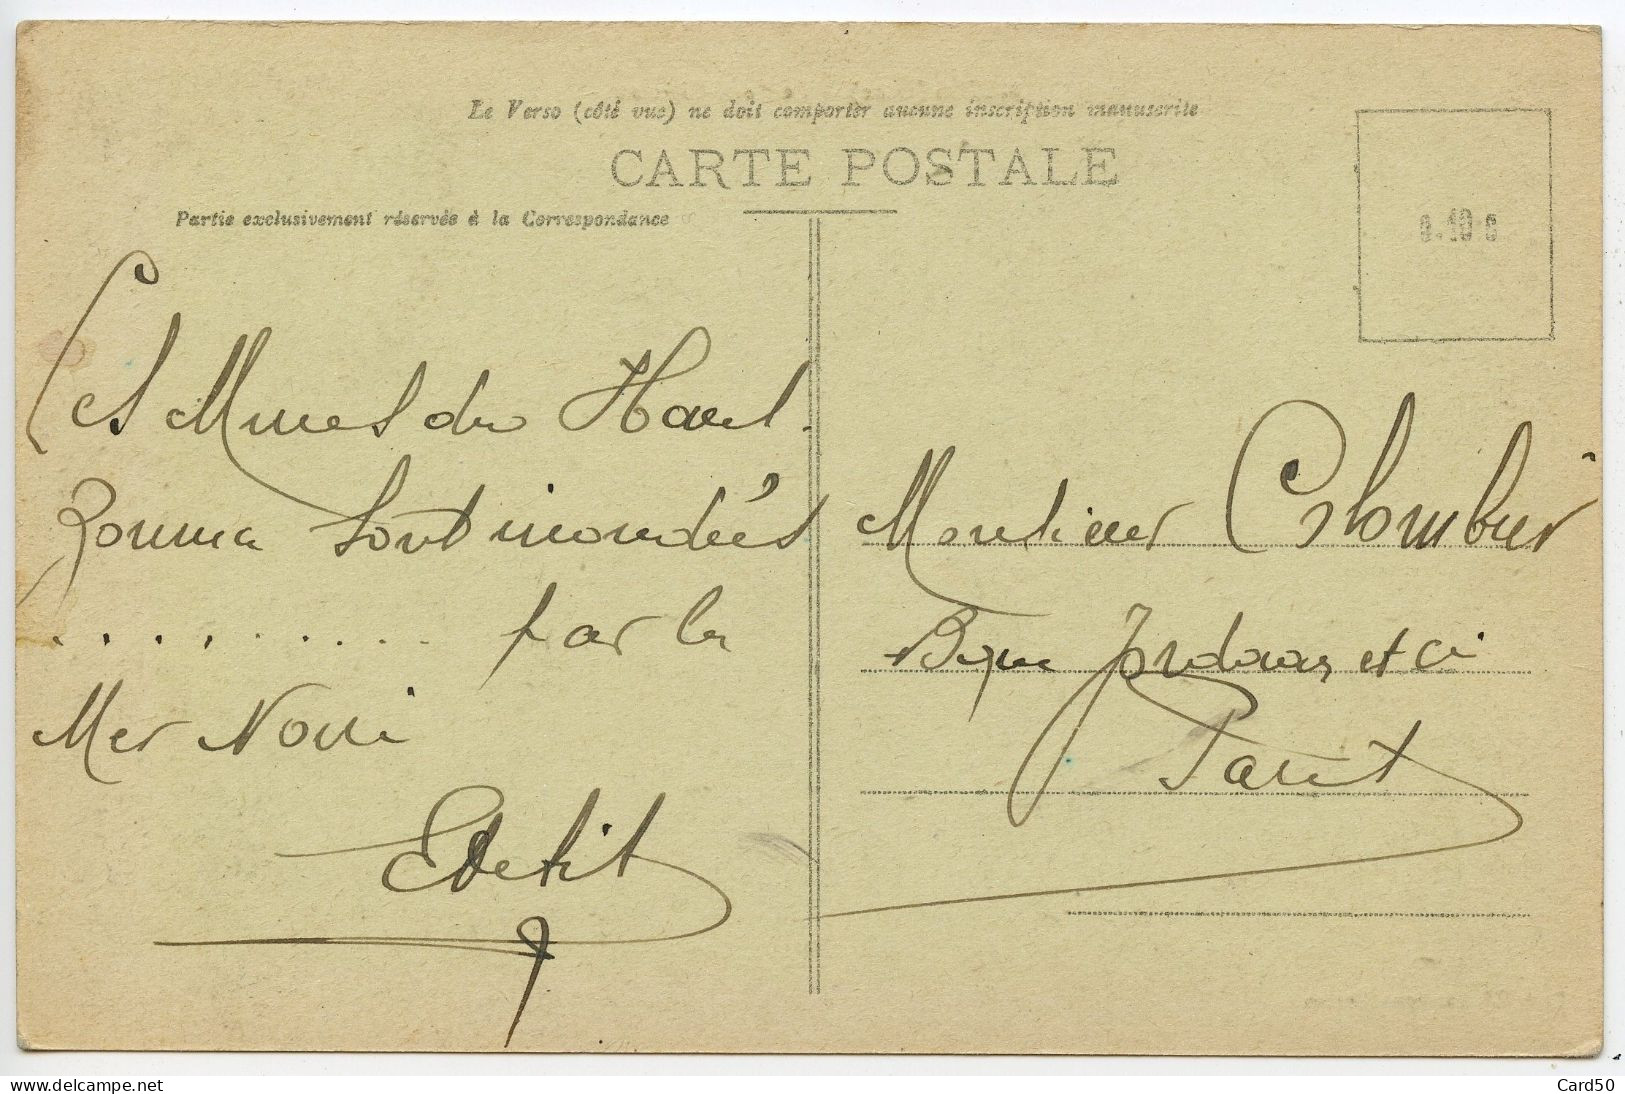 Le Verso (côté vue) ne doit comporter aucune inscription manuscrite
CARTE POSTALE
Partie exclusivement réservée à la Correspondance
0.10 c
Les Mines du Haut
Zouma sont inondées
. . . . . . . . . par la
Mer Noire
Monsieur Colombier
Bque et Cie
Paris
www.delcampe.net
Card50